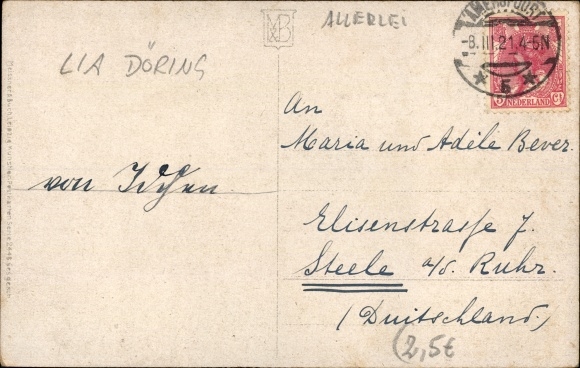 ALLERLEI
LIA DÖRING
MB
-8.III.21.4-5N
5
5 NEDERLAND CT
An
Maria und Adèle Bever.
von
Elisenstrasse 7.
Steele a/d. Ruhr.
(Duitschland)
(2,5€